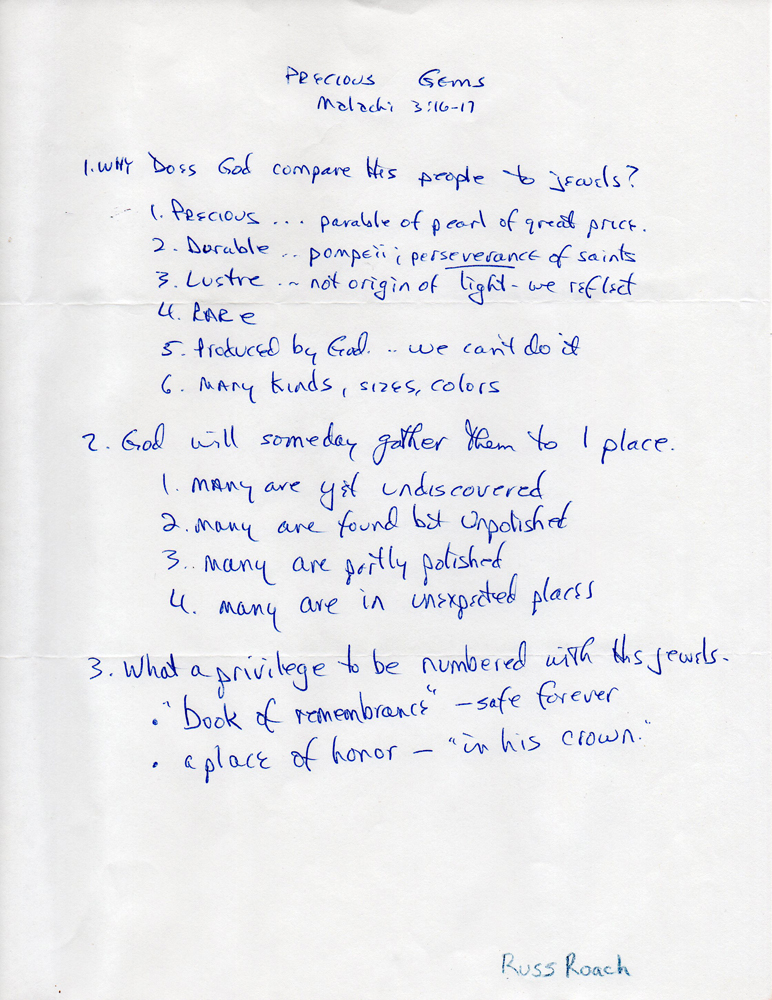 Precious Gems
Malachi 3:16-17
1. Why Does God compare His people to jewels?
1. Precious ... parable of pearl of great price.
2. Durable .. pompeii; perseverance of saints
3. Lustre .. not origin of light - we reflect
4. Rare
5. Produced by God .. we can't do it
6. Many kinds, sizes, colors
2. God will someday gather them to 1 place.
1. Many are yet undiscovered
2. Many are found but unpolished
3. Many are partly polished
4. Many are in unexpected places
3. What a privilege to be numbered with His jewels.
• "book of remembrance" - safe forever
• a place of honor - "in his crown."
Russ Roach